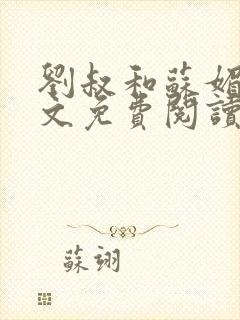 劉叔和蘇媚
文免費閱讀
蘇翊